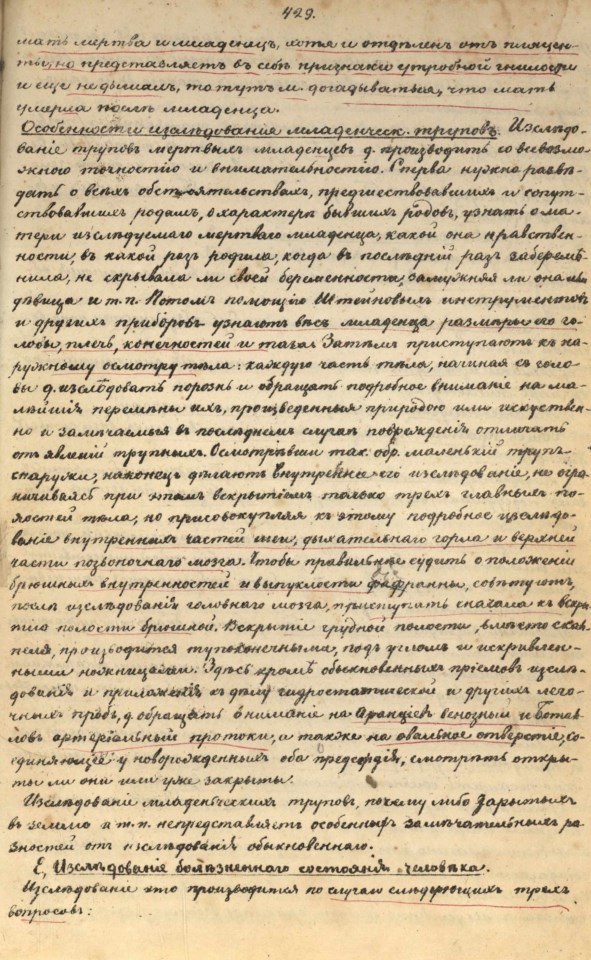 429.
мать мертва и младенецъ, хотя и отдѣленъ отъ плацен-
ты, но представляетъ въ себѣ признаки утробной гнилости
и еще недышалъ, то тутъ м. догадываться, что мать
умерла послѣ младенца.
Особенности изслѣдованія младенческ. труповъ. Изслѣдо-
ваніе труповъ мертвыхъ младенцевъ д. производить со всевозмо-
жною точностію и внимательностію. Сперва нужно развѣ-
дать о всѣхъ обстоятельствахъ, предшествовавшихъ и сопут-
ствовавшихъ родамъ, о характерѣ бывшихъ родовъ, узнать о ма-
тери изслѣдуемаго мертваго младенца, какой она нравствен-
ности, въ какой разъ родила, когда въ послѣдній разъ заберемѣ-
нила, не скрывала ли своей беременности, замужняя ли она или
дѣвица и т. п. Потомъ помощію Штейновыхъ инструментовъ
и другихъ приборовъ узнаютъ вѣсъ младенца размѣры его го-
ловы, плечъ, конечностей и таза. Затѣмъ приступаютъ къ на-
ружному осмотру тѣла: каждую часть тѣла, начиная съ голо-
вы д. изслѣдовать порознь и обращать подробное вниманіе на ма-
лѣйшія перемѣны ихъ, произведенныя природою или искуствен-
но и замѣчаемыя въ послѣднемъ случаѣ поврежденія отличать
отъ явленій трупныхъ. Осмотрѣвши так. обр. маленькій трупъ
снаружи, наконецъ дѣлаютъ внутреннее его изслѣдованіе, не огра-
ничиваясь при этомъ вскрытіемъ только трехъ главныхъ по-
лостей тѣла, но присовокупляя къ этому подробное изслѣдо-
ваніе внутреннихъ частей шеи, дыхательнаго горла и верхней
части позвоночнаго мозга. Чтобы правильнѣе судить о положеніи
брюшныхъ внутренностей и выпуклости діафрагмы, совѣтуютъ,
послѣ изслѣдованія головнаго мозга, приступать сначала къ вскры-
тію полости брюшной. Вскрытіе грудной полости, вмѣсто скаль-
пеля, производится тупоконечными, подъ угломъ и искривлен-
ными ножницами. Здѣсь кромѣ обыкновенныхъ пріемовъ изслѣ-
дованія и приложенія къ дѣлу гидростатической и другихъ лего-
чныхъ пробъ, д. обращать вниманіе на Аранціевъ венозный и Ботал-
ловъ артеріальный протоки, а также на овальное отверстіе, со-
единяющее у новорожденныхъ оба предсердія, смотрѣть откры-
ты ли они или уже закрыты.
Изслѣдованіе младенческихъ труповъ, почему либо зарытыхъ
въ землю и т. п. непредставляетъ особенныхъ замѣчательныхъ ра-
зностей отъ изслѣдованія обыкновеннаго.
Е, Изслѣдованіе болѣзненнаго состоянія человѣка.
Изслѣдованіе это производится по случаю слѣдующихъ трехъ
вопросовъ: